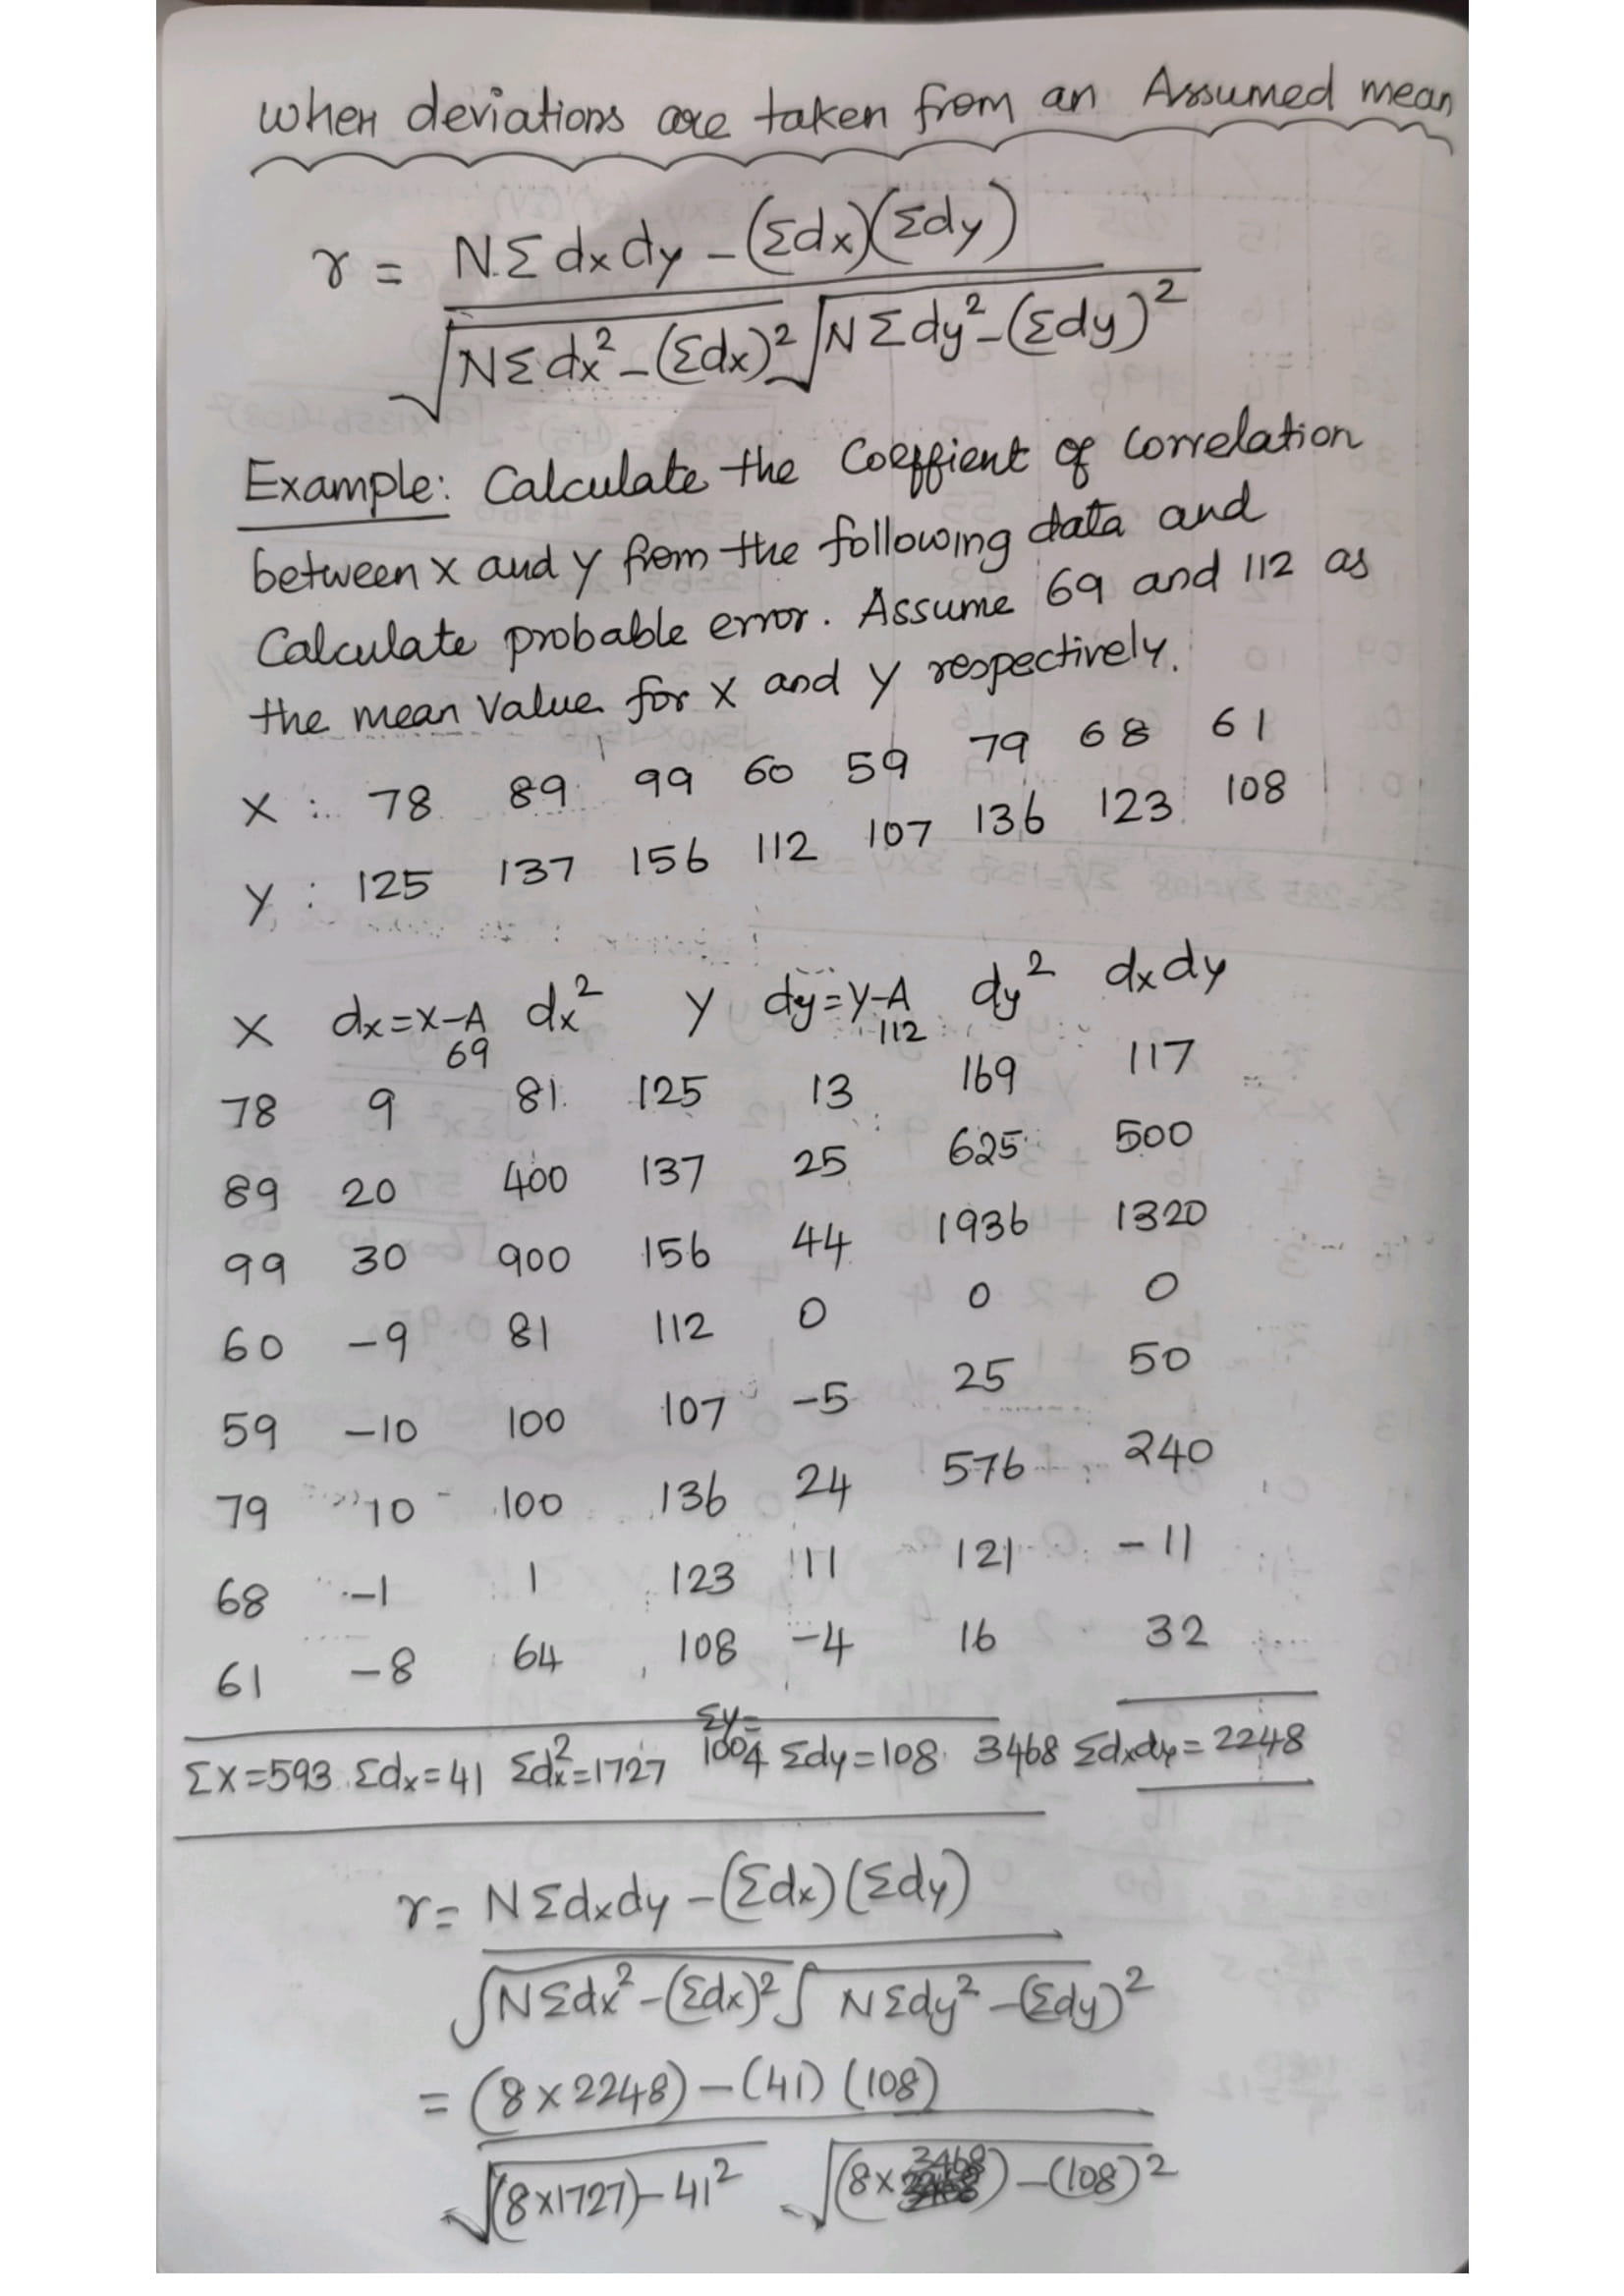 when deviations are taken from an Assumed mean
r = N.Σdxdy - (Σdx)(Σdy)
√NΣdx² - (Σdx)² √NΣdy² - (Σdy)²
Example: Calculate the Coeffient of Correlation
between x and y from the following data and
Calculate probable error. Assume 69 and 112 as
the mean Value for x and y respectively.
X : 78 89 99 60 59 79 68 61
Y : 125 137 156 112 107 136 123 108
X dx=X-A dx² Y dy=Y-A dy² dxdy
69 112
78 9 81 125 13 169 117
89 20 400 137 25 625 500
99 30 900 156 44 1936 1320
60 -9 81 112 0 0 0
59 -10 100 107 -5 25 50
79 10 100 136 24 576 240
68 -1 1 123 11 121 -11
61 -8 64 108 -4 16 32
ΣX=593 Σdx=41 Σdx²=1727 Σy=1004 Σdy=108 3468 Σdxdy=2248
r = NΣdxdy - (Σdx)(Σdy)
√NΣdx² - (Σdx)² √NΣdy² - (Σdy)²
= (8×2248) - (41)(108)
√(8×1727) - 41² √(8×3468) - (108)²